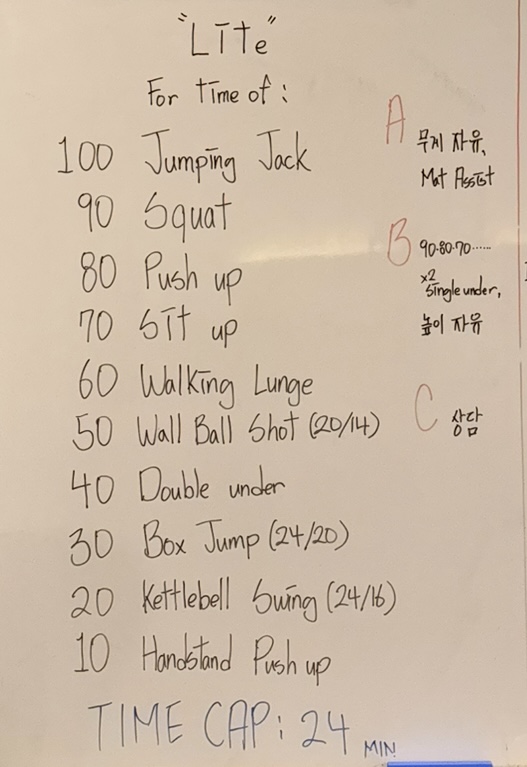 "Lite"
For time of :
100 Jumping Jack
90 Squat
80 Push up
70 Sit up
60 Walking Lunge
50 Wall Ball Shot (20/14)
40 Double under
30 Box Jump (24/20)
20 Kettlebell Swing (24/16)
10 Handstand Push up
TIME CAP : 24 MIN
A 무게 자유,
Mat Assist
B 90·80·70······
x2
Single under,
높이 자유
C 상담